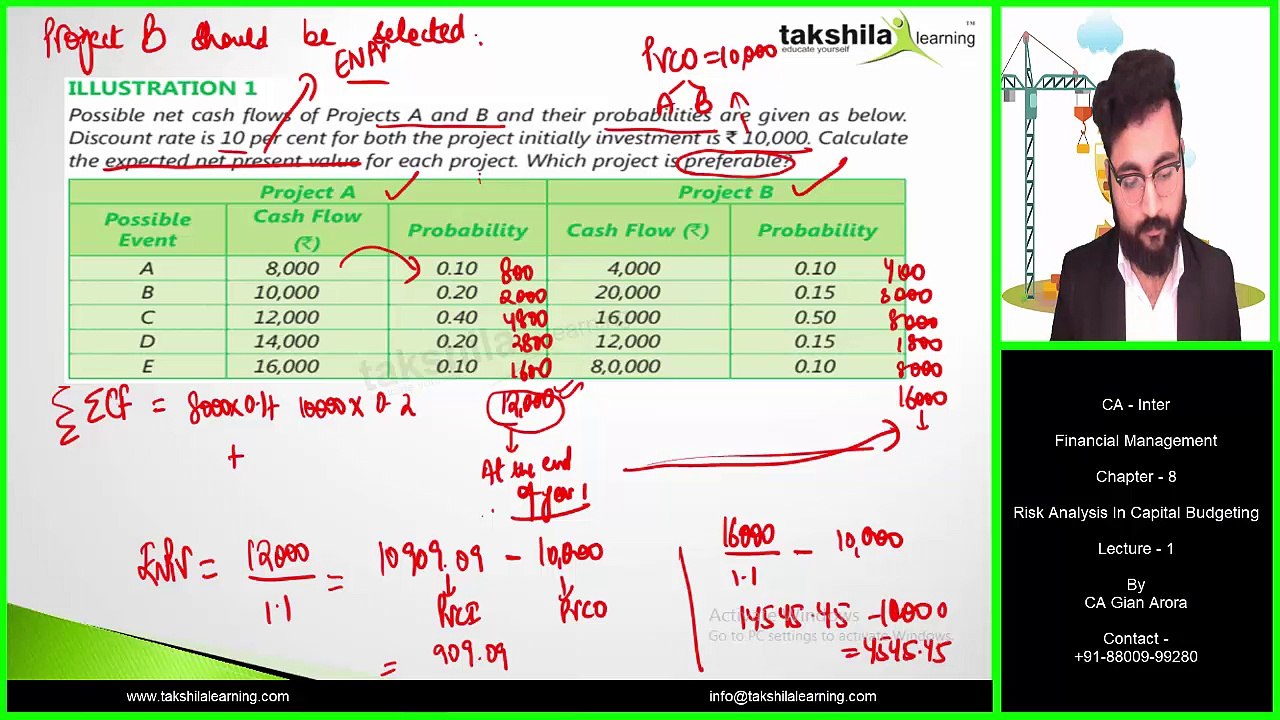 Project B should be selected.
takshila learning ™
educate yourself
ENPV
PVCO = 10,000
A B
ILLUSTRATION 1
Possible net cash flows of Projects A and B and their probabilities are given as below.
Discount rate is 10 per cent for both the project initially investment is ₹ 10,000. Calculate
the expected net present value for each project. Which project is preferable?
Project A Project B
Possible Event Cash Flow (₹) Probability Cash Flow (₹) Probability
A 8,000 0.10 800 4,000 0.10 400
B 10,000 0.20 2000 20,000 0.15 3000
C 12,000 0.40 4800 16,000 0.50 8000
D 14,000 0.20 2800 12,000 0.15 1800
E 16,000 0.10 1600 8,0,000 0.10 8000
takshila learning
ΣCF = 8000 x 0.1 10000 x 0.2
+
12,000
16000
At the end
of year 1
ENPV = 12000 / 1.1 = 10909.09 - 10,000
PVCI PVCO
= 909.09
16000 / 1.1 - 10,000
14545.45 - 10000
= 4545.45
Activate Windows
Go to PC settings to activate Windows.
CA - Inter
Financial Management
Chapter - 8
Risk Analysis In Capital Budgeting
Lecture - 1
By
CA Gian Arora
Contact -
+91-88009-99280
www.takshilalearning.com
info@takshilalearning.com